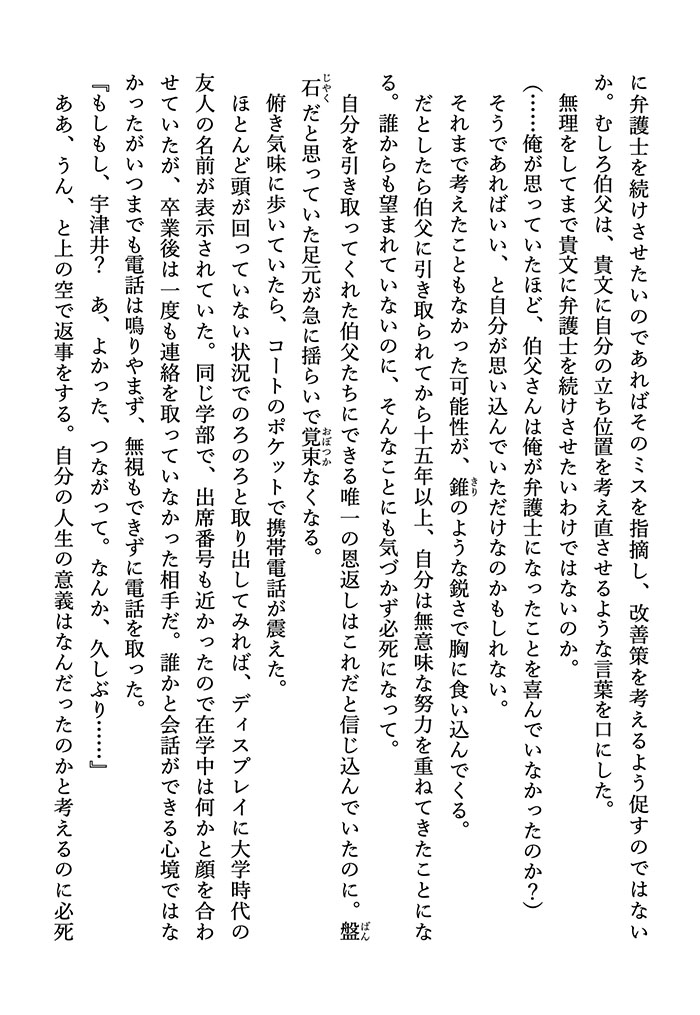 に弁護士を続けさせたいのであればそのミスを指摘し、改善策を考えるよう促すのではない
か。むしろ伯父は、貴文に自分の立ち位置を考え直させるような言葉を口にした。
無理をしてまで貴文に弁護士を続けさせたいわけではないのか。
(……俺が思っていたほど、伯父さんは俺が弁護士になったことを喜んでいなかったのか?)
そうであればいい、と自分が思い込んでいただけなのかもしれない。
それまで考えたこともなかった可能性が、錐のような鋭さで胸に食い込んでくる。
だとしたら伯父に引き取られてから十五年以上、自分は無意味な努力を重ねてきたことにな
る。誰からも望まれていないのに、そんなことにも気づかず必死になって。
自分を引き取ってくれた伯父たちにできる唯一の恩返しはこれだと信じ込んでいたのに。盤
石だと思っていた足元が急に揺らいで覚束なくなる。
俯き気味に歩いていたら、コートのポケットで携帯電話が震えた。
ほとんど頭が回っていない状況でのろのろと取り出してみれば、ディスプレイに大学時代の
友人の名前が表示されていた。同じ学部で、出席番号も近かったので在学中は何かと顔を合わ
せていたが、卒業後は一度も連絡を取っていなかった相手だ。誰かと会話ができる心境ではな
かったがいつまでも電話は鳴りやまず、無視もできずに電話を取った。
『もしもし、宇津井? あ、よかった、つながって。なんか、久しぶり……』
ああ、うん、と上の空で返事をする。自分の人生の意義はなんだったのかと考えるのに必死